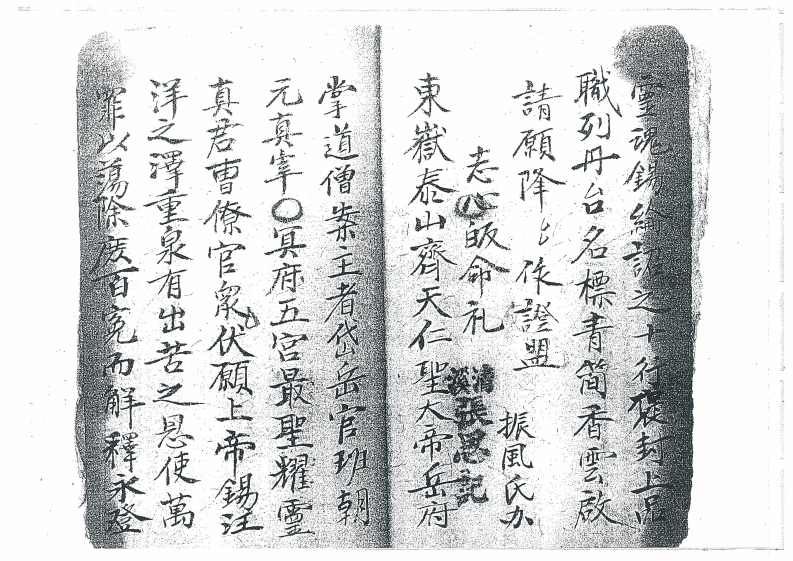 靈魂錫綸詔之十行寵封上品
職列丹台名標青簡香雲啟
請願降〻依證盟
振風氏办
志心皈命礼
清溪張思記
東嶽泰山齊天仁聖大帝岳府
掌道僧案主者岱岳官班朝
元真宰〇冥府五宫最聖耀靈
真君曹僚官眾伏願上帝錫汪
洋之澤重泉有出苦之恩使萬
罪以蕩除廣百冤而解釋永登